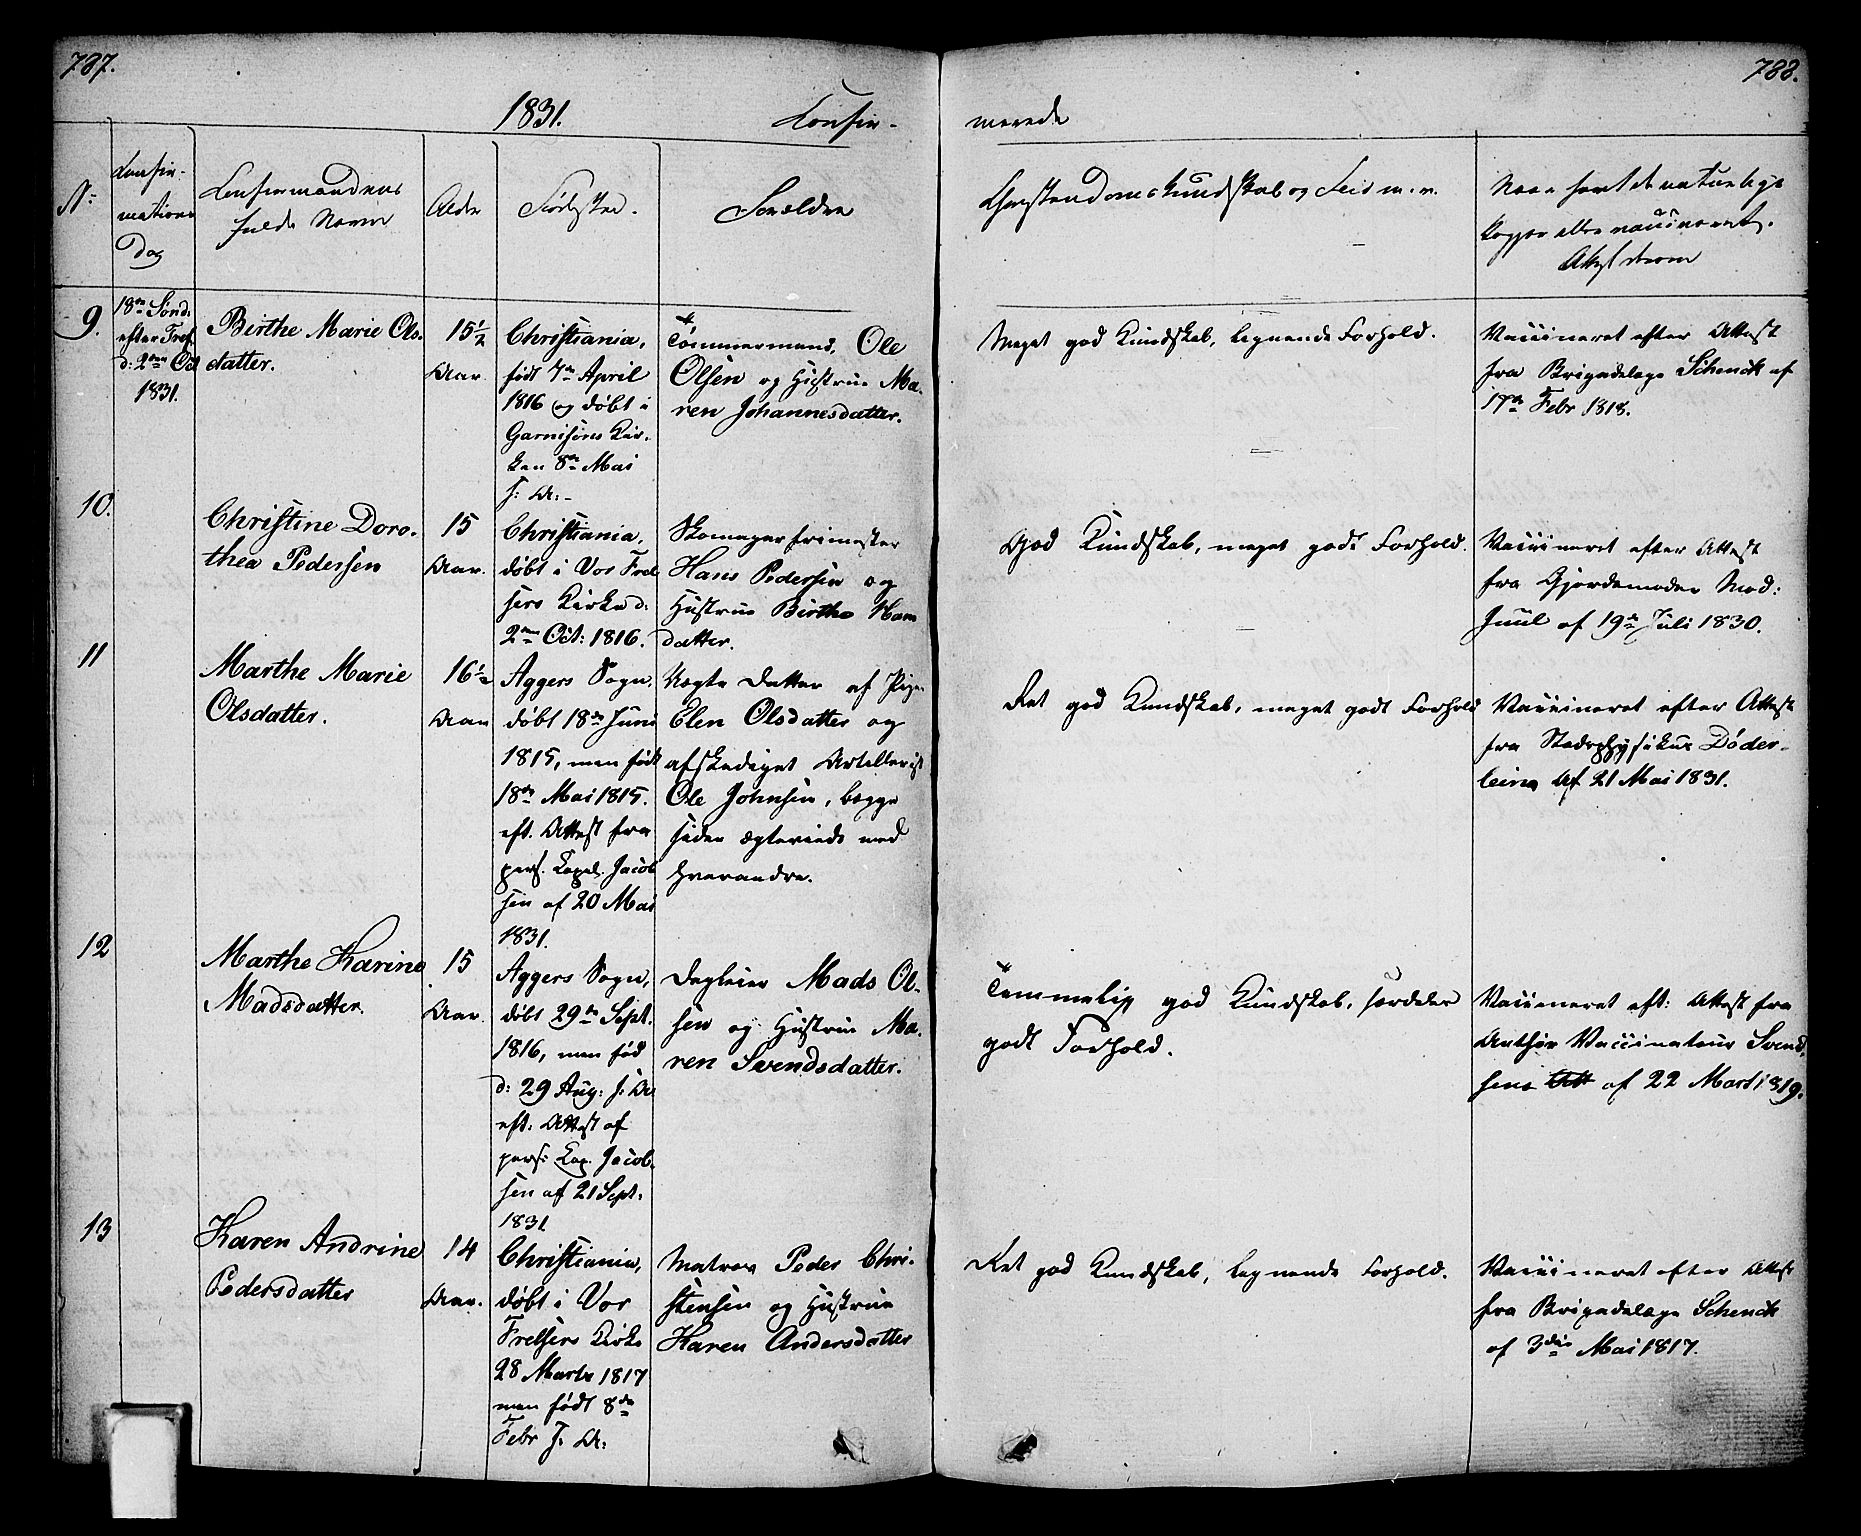 787.
788.
1831.
Confir-
merede
No
Confir-
mations
Dag
Confirmandens
fulde Navn
Alder
Fødested.
Forældre
Christendomskundskab og Flid m. v.
Naar havt de naturlige
Kopper eller vaccineret,
Attest derom
9.
18de Sønd:
efter Tref.
d: 2den Oct
1831.
Birthe Marie Ols-
datter.
15½
Aar.
Christiania,
født 7de April
1816 og døbt i
Garnisons Kir-
ken 8de Mai
s: A:
Tømmermand, Ole
Olsen og Hustrue Ma-
ren Johannesdatter.
Meget god Kundskab, lignende Forhold.
Vaccineret efter Attest
fra Brigadelæge Schenck af
17de Febr 1818.
10.
Christine Doro-
thea Pedersen
15
Aar.
Christiania,
døbt i Vor Frel
sers Kirke d:
2den Oct: 1816.
Skomager frimester
Hans Pedersen og
Hustrue Birthe Ham
datter.
God Kundskab, meget godt Forhold.
Vaccineret efter Attest
fra Gjordemoder Mad:
Juul af 19de Juli 1830.
11
Marthe Marie
Olsdatter.
16½
Aar
Aggers Sogn,
døbt 18de Juni
1815, men født
18de Mai 1815.
eft. Attest fra
pers. Capel. Jacob
sen af 20 Mai
1831.
Uægte Datter af Pige
Elen Olsdatter og
afskediget Artillerist
Ole Johnsen, begge
siden ægteviede med
hverandre.
Ret god Kundskab, meget godt Forhold
Vaccineret efter Attest
fra Stadsphysikus Døder-
lein af 21 Mai 1831.
12
Marthe Karine
Madsdatter.
15
Aar.
Aggers Sogn,
døbt 29de Sept.
1816, men fød
d: 29 Aug: s: A:
eft: Attest af
pers: Cap. Jacob-
sen af 21 Sept:
1831
Dagleier Mads Ol-
sen og Hustrue Ma-
ren Svendsdatter.
Temmelig god Kundskab, særdeles
godt Forhold.
Vaccineret eft: Attest fra
Vaccinateur Svend
sens af 22 Marts 1819.
13
Karen Andrine
Pedersdatter
14
Aar.
Christiania,
døbt i Vor
Frelsers Kirke
28 Marts 1817
men født 8de
Febr s: A:
Matros Peder Chri-
stensen og Hustrue
Karen Andersdatter
Ret god Kundskab, lignende Forhold.
Vaccineret efter Attest
fra Brigadelæge Schenck
af 3die Mai 1817.